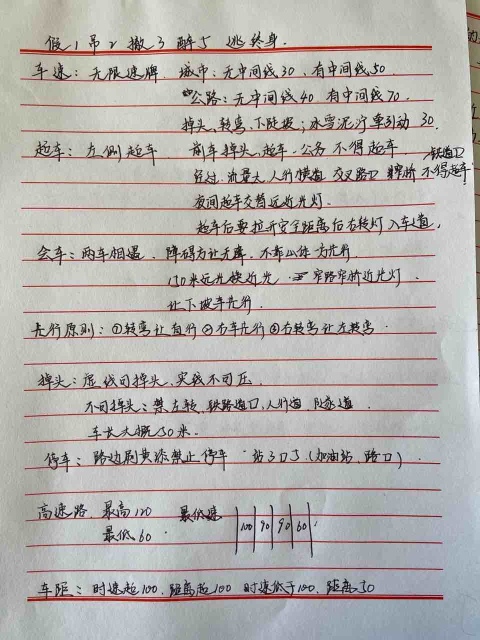 假1 吊2 撤3 醉5 逃终身.
车速: 无限速牌 城市: 无中间线30, 有中间线50.
公路: 无中间线40 有中间线70.
掉头、转弯、下陡坡; 冰雪泥泞牵引动 30.
超车: 左侧超车 前车掉头、超车、公务 不得超车 铁道口
经过 流量大 人行横道 交叉路口 窄桥 不得超车!
夜间超车交替远近光灯.
超车后要拉开安全距离后右转灯入车道.
会车: 两车相遇 障碍方让无障, 不靠山体方先行
150米远光换近光 窄路窄桥近光灯.
让下坡车先行.
先行原则: ①转弯让直行 ②右车先行 ③右转弯让左转弯
掉头: 虚线可掉头, 实线不可压
不可掉头: 禁左转, 铁路道口, 人行道, 隧道.
车长大概50米.
停车: 路边刷黄漆禁止停车 站30口5 (加油站、路口)
高速路 最高120 最低速 |100|90|90|60|
最低60
车距: 时速超100, 距离超100 时速低于100, 距离50